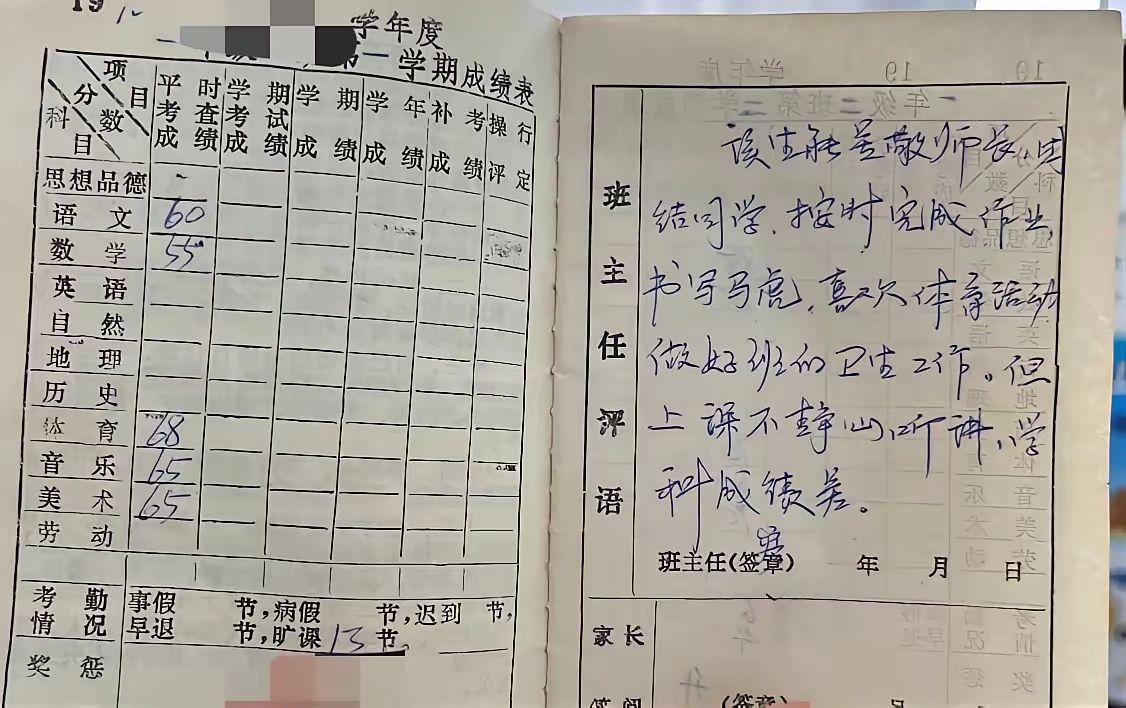 19
学年度
第一学期成绩表
项目 分数 科目 平时考查成绩 学期考试成绩 学期成绩 学年成绩 补考成绩 操行评定
思想品德
语文 60
数学 55
英语
自然
地理
历史
体育 68
音乐 65
美术 65
劳动
考勤情况 事假 节,病假 节,迟到 节,
早退 节,旷课13节,
奖惩
班主任评语
该生能尊敬师长,团
结同学,按时完成作业,
书写马虎,喜欢体育活动
做好班的卫生工作。但
上课不静心听讲,学
科成绩差。
班主任(签章) 年 月 日
家长
(签章) 月